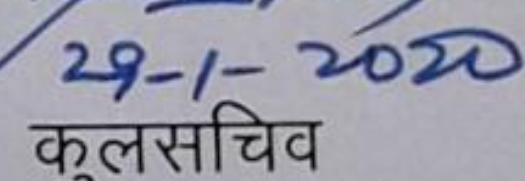 29-1-2020
कुलसचिव